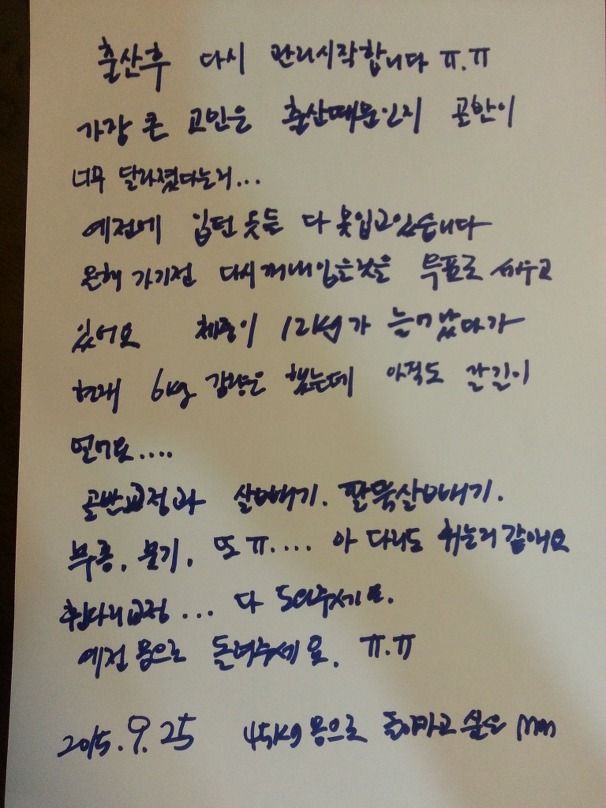 출산후 다시 관리시작합니다 ㅠ.ㅠ
가장 큰 고민은 출산때문인지 골반이
너무 달라졌다는거...
예전에 입던 옷들 다 못입고있습니다
올해 가기전 다시꺼내입는것을 목표로 세우고
있어요 체중이 12kg가 늘어났다가
현재 6kg 감량은 했는데 아직도 갈길이
멀어요....
골반교정과 살빼기. 팔뚝살빼기.
부종, 붓기, 또 ㅠ.... 아 다리도 휘는거 같애요
휜다리교정 ... 다 도와주세요.
예전 몸으로 돌려주세요. ㅠ.ㅠ
2015.9.25 45kg 몸으로 돌아가고 싶은